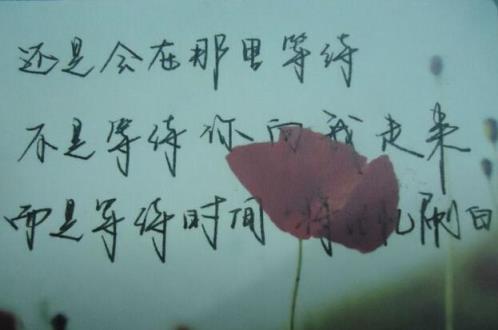 还是会在那里等待
不是等待你向我走来
而是等待时间 将记忆刷白